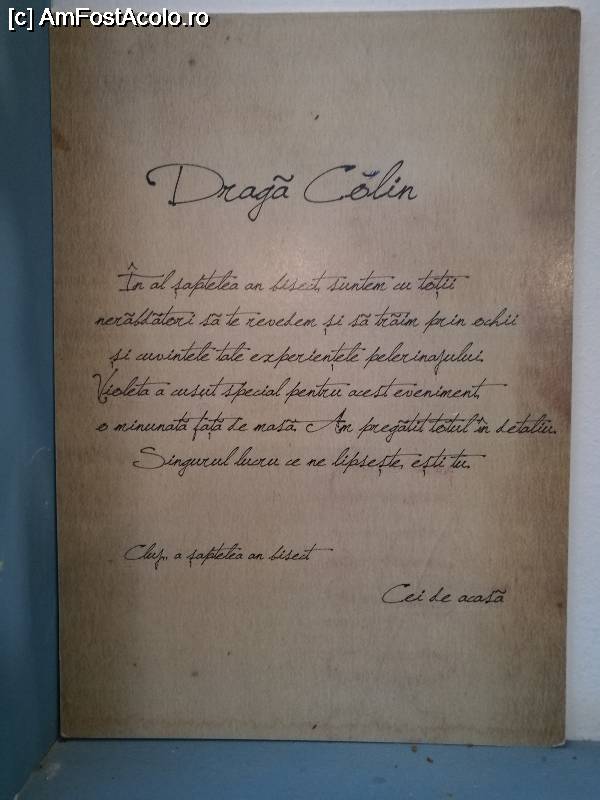 [c] AmFostAcolo.ro
Dragă Călin
În al șaptelea an bisect, suntem cu toții
nerăbdători să te revedem și să trăim prin ochii
și cuvintele tale experiențele pelerinajului.
Violeta a cusut special pentru acest eveniment,
o minunată față de masă. Am pregătit totul în detaliu.
Singurul lucru ce ne lipsește, ești tu.
Cluj, a șaptelea an bisect
Cei de acasă